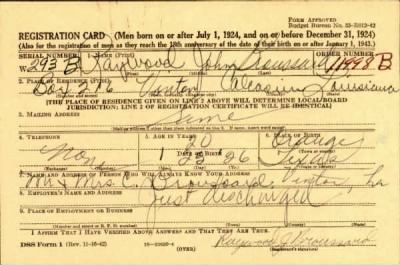 FORM APPROVED
REGISTRATION CARD (Men born on or after July 1, 1924, and on or before December 31, 1924)
(Also for the registration of men as they reach the 18th anniversary of the date of their birth on or after January 1, 1943.)
1. NAME (Print)
293 B Haywood John Broussard 11998 B
2. PLACE OF RESIDENCE
Box 276 Vinton Calcasieu Louisiana
[THE PLACE OF RESIDENCE GIVEN ON LINE 2 ABOVE WILL DETERMINE LOCAL BOARD
JURISDICTION; LINE 2 OF REGISTRATION CERTIFICATE WILL BE IDENTICAL]
3. MAILING ADDRESS
Same
4. TELEPHONE 5. AGE IN YEARS 6. PLACE OF BIRTH
20 Orange
DATE OF BIRTH
None 26 Texas
7. NAME AND ADDRESS OF PERSON WHO WILL ALWAYS KNOW YOUR ADDRESS
Mr & Mrs. C. Broussard, Vinton, La
8. EMPLOYER'S NAME AND ADDRESS
Just discharged
9. PLACE OF EMPLOYMENT OR BUSINESS
I AFFIRM THAT I HAVE VERIFIED ABOVE ANSWERS AND THAT THEY ARE TRUE.
DSS Form 1 (Rev. 11-16-42)
Haywood J Broussard